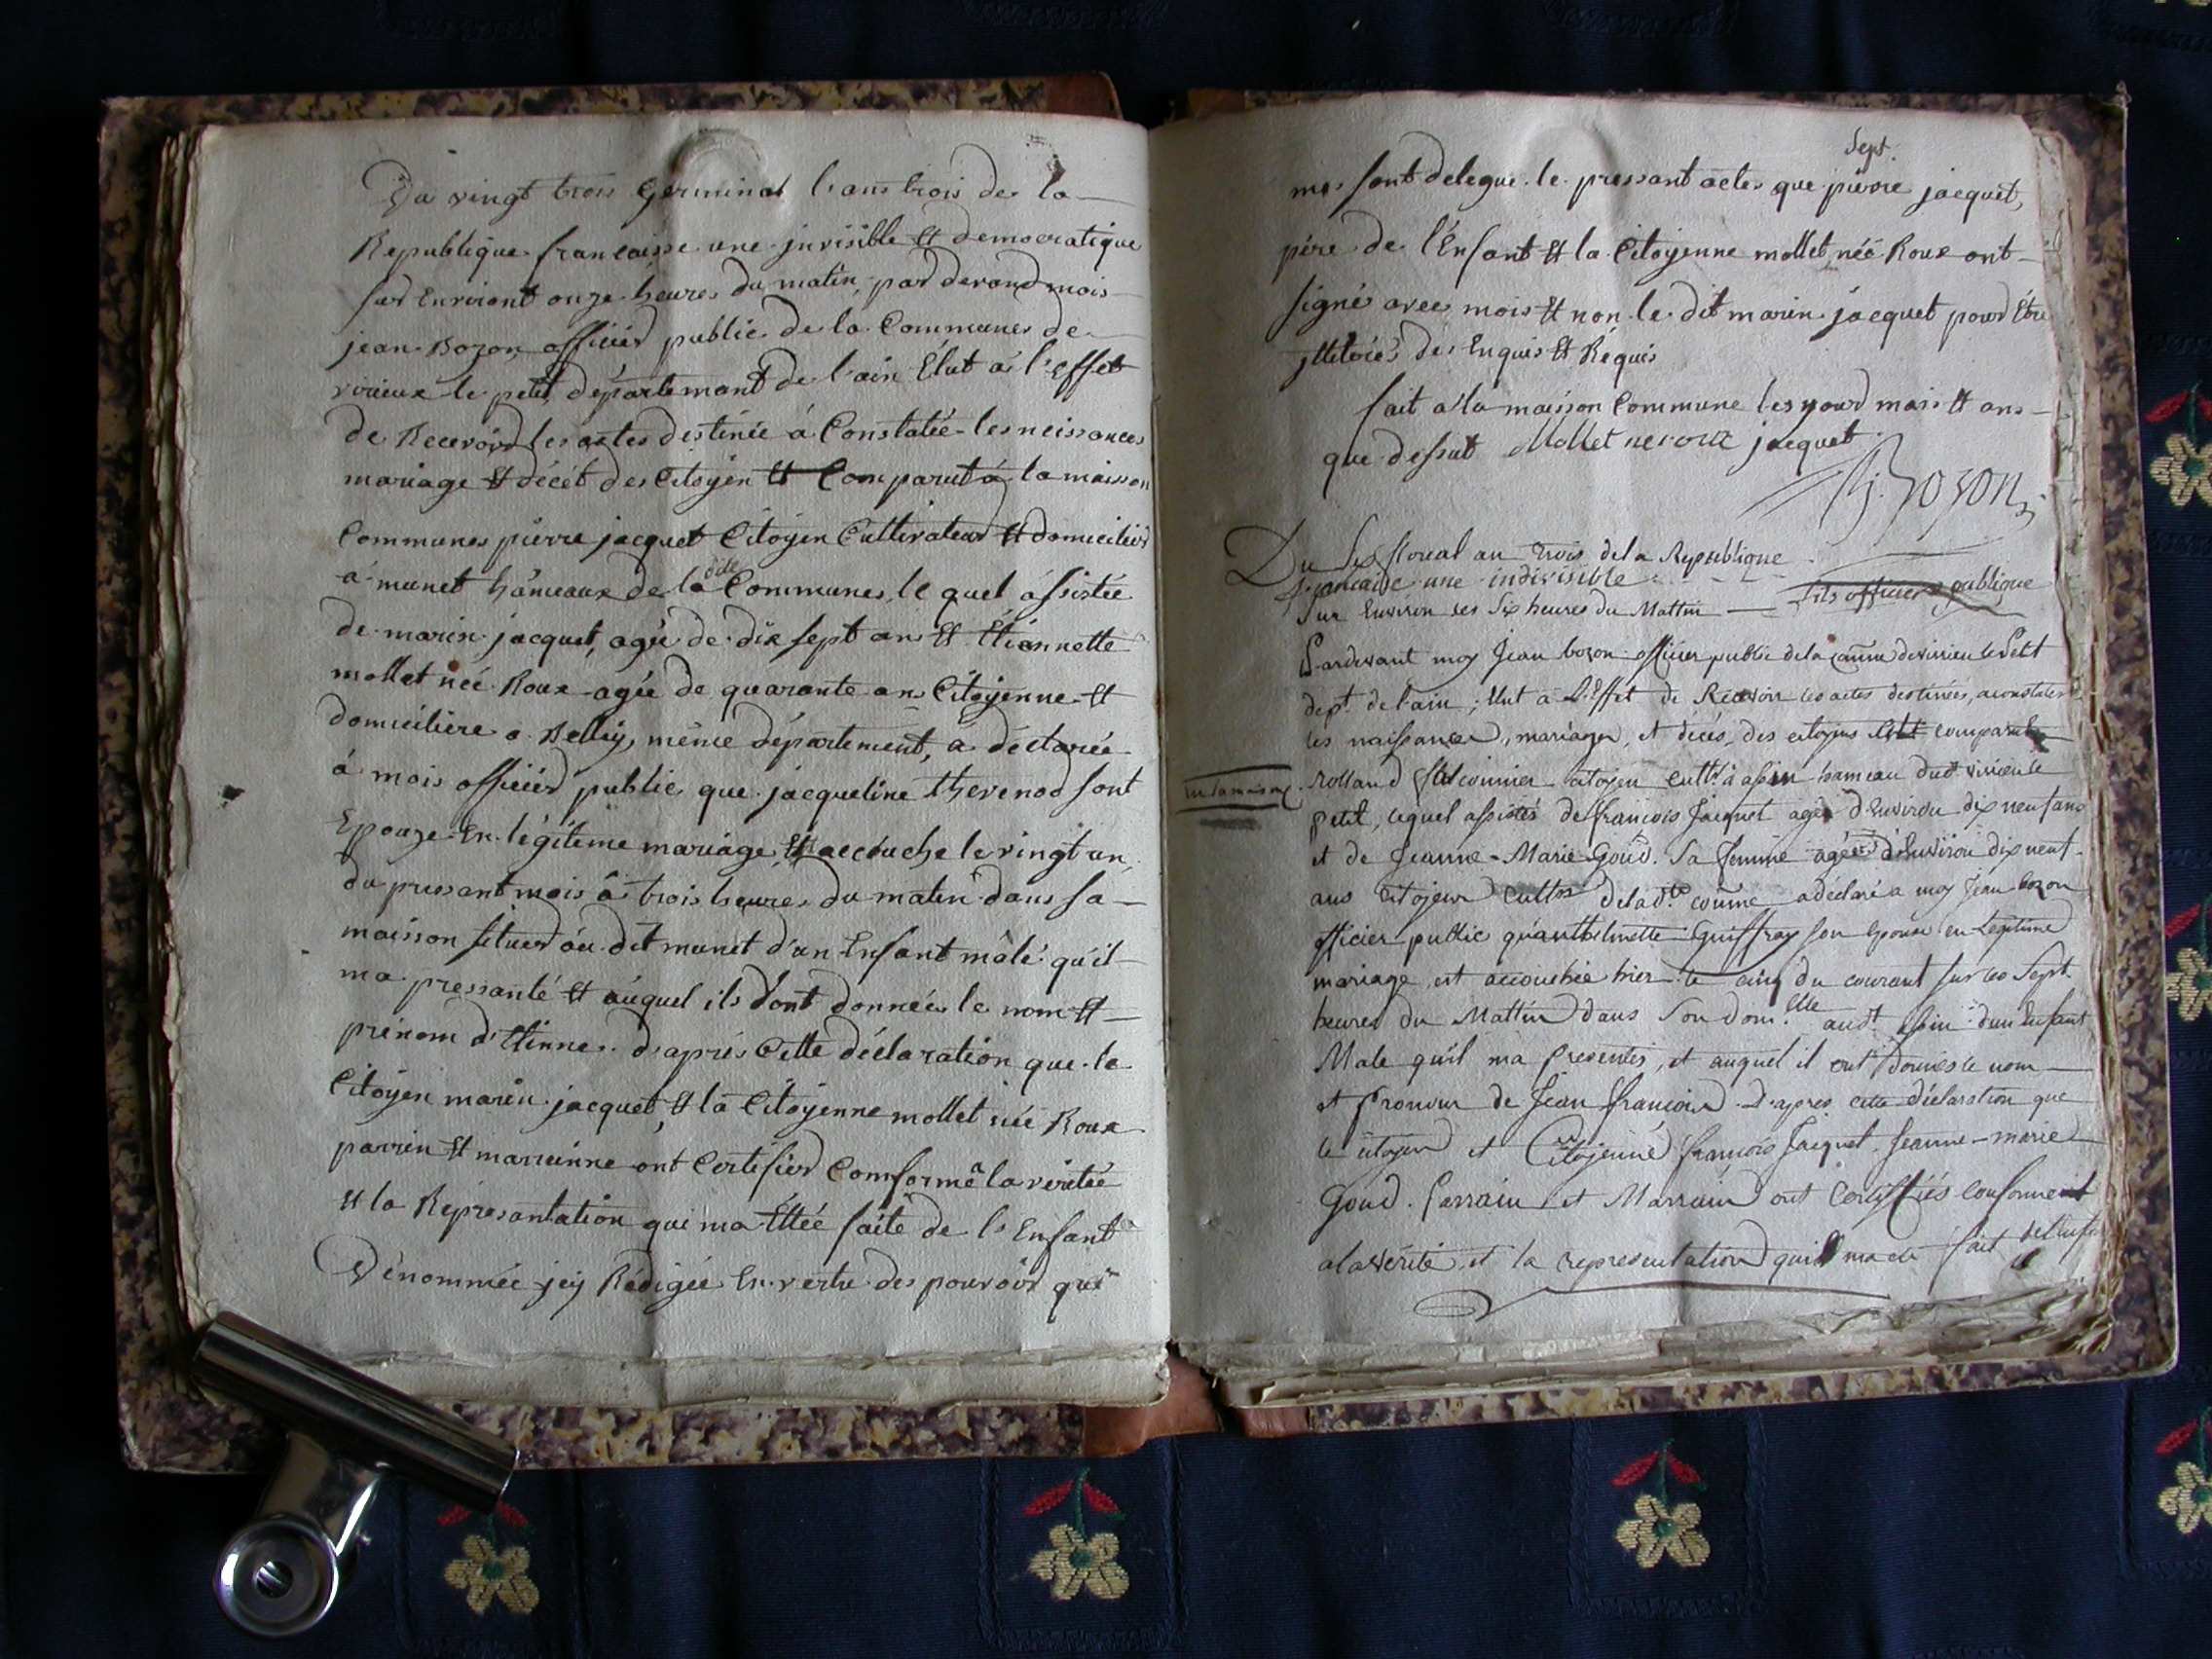 Du vingt trois Germinal l'ans trois de la
Republique francaisse une jnvisible et democratique
sur Environt onze heures du matin, par devand mois
jean Bozon officier public de la Communes de
virieux le petit, departemant de l'ain Élut a l'effet
de Recevoird les actes destinée á Constatée les neissances
mariage et décét des Citoyen et Comparut á la maisson
Communes pierre jacquet Citoyen Cultivateur et domicilier
a munet hâmeaux de la dite Communes, le quel assistée
de marin jacquet, agée de dix sept ans et Etiennette
mollet née Roux agée de quarante ans Citoyenne et
domiciliere a Belley, même département, a déclarée
á mois officier public que jacqueline thevenod sont
Epouze En légitime mariage Est accouche le vingt un
du pressant mois á trois heures du matin dans sa
maisson situer au dit munet d'un Enfant mâle qu'il
ma pressanté et auquel ils dont données le nom et
prénom d'Etienne. d'aprés Cette déclaration que le
Citoyen marin jacquet, et la Citoyenne mollet née Roux
parrein et marreinne ont Certifier Comformê la véritée
et la Représantation qui ma Ettée faite de l'Enfant
Dénommée jcy Rédigée En vertu des pouvoir qui
Sept.
me sont delegue le pressant actes que pierre jacquet,
pére de l'Enfant et la Citoyenne mollet née Roux ont
signés avec mois et non le dit marin jacquet pour Etre
jlleterés de Enquis et Réquis
fait a la maisson Commune les jourd mois et ans
que dessut Mollet ne roux jacquet
J. Bozon
Du Six floreal an trois de la Republique
francaise une indivisible
Sur Environ les Six heures du Mattin officier publique
Pardevant moy Jean bozon officier public de la Comune de virieu le Petit
dept. de l'ain ; Elut a L'Effet de Recevoir les actes destinées, a constater
les naissances, mariages, et décés, des citoyens est comparut
en la maison Rolland falconnier citoyen cultr. à assin hameau dud. virieu le
petit, lequel assistés de francois Jacquet agé d'Environ dix neuf ans
et de Jeanne-Marie Goud. Sa femme agée d'Environ dix neuf
ans Citoyens Cultrs de lad.te comune a déclaré a moy Jean bozon
officier public qu'anthelmette Guiffray son Epouse en Legitime
mariage, est accouchée hier le cinq du courant sur les Sept.
heures du Mattin dans Son Dom.lle aud.t assin d'un Enfant
Male qu'il ma presentés, et auquel il ont donnés le nom
et Prenom de Jean francois. D'apres cette déclaration que
le citoyen et Citoyenne francois Jacquet Jeanne-marie
Goud. Parrain et Marrain ont Certiffiés conforment
a la vérité, et la representation quil ma eté fait de l'enfa